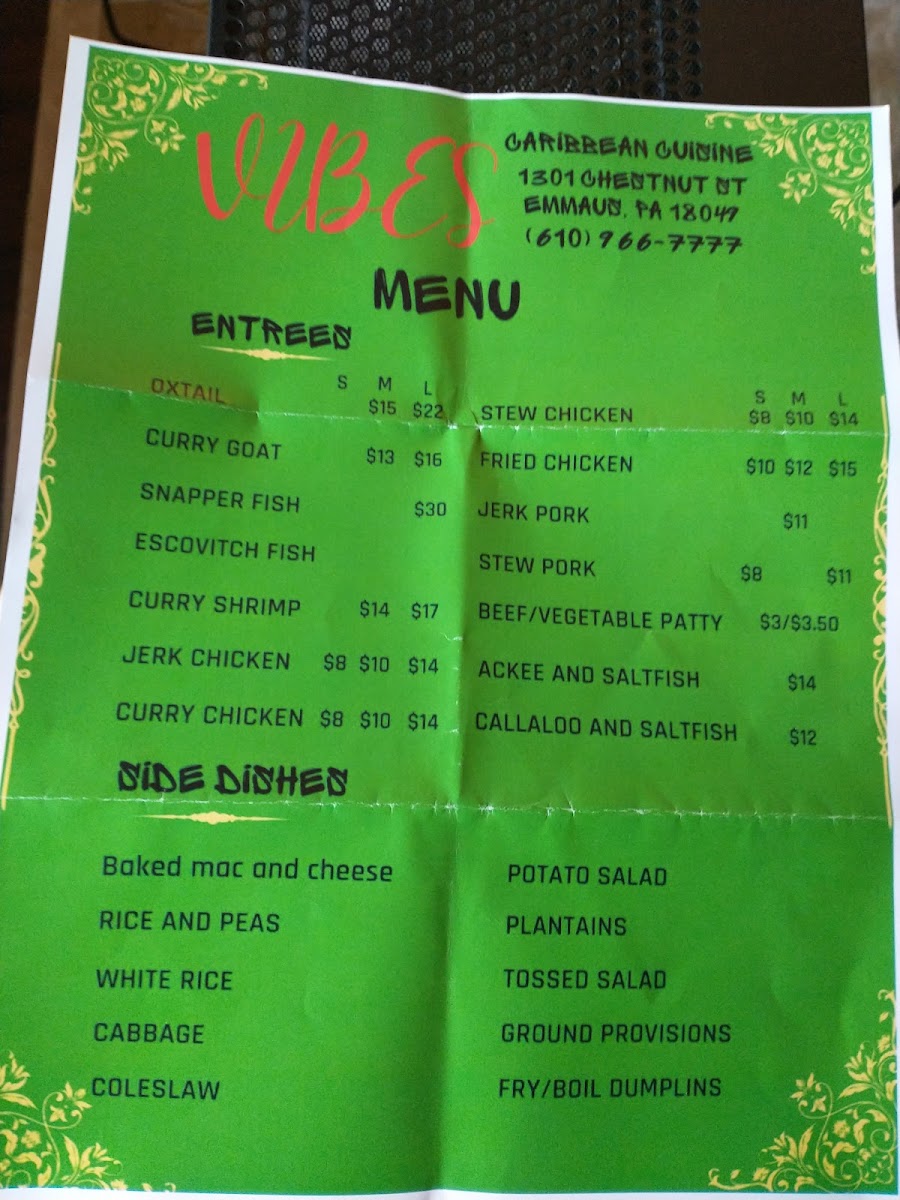 VIBES
CARIBBEAN CUISINE
1301 CHESTNUT ST
EMMAUS, PA 18049
(610) 966-7777
MENU
ENTREES
S M L
OXTAIL $15 $22
CURRY GOAT $13 $16
SNAPPER FISH $30
ESCOVITCH FISH
CURRY SHRIMP $14 $17
JERK CHICKEN $8 $10 $14
CURRY CHICKEN $8 $10 $14
S M L
STEW CHICKEN $8 $10 $14
FRIED CHICKEN $10 $12 $15
JERK PORK $11
STEW PORK $8 $11
BEEF/VEGETABLE PATTY $3/$3.50
ACKEE AND SALTFISH $14
CALLALOO AND SALTFISH $12
SIDE DISHES
Baked mac and cheese
RICE AND PEAS
WHITE RICE
CABBAGE
COLESLAW
POTATO SALAD
PLANTAINS
TOSSED SALAD
GROUND PROVISIONS
FRY/BOIL DUMPLINS